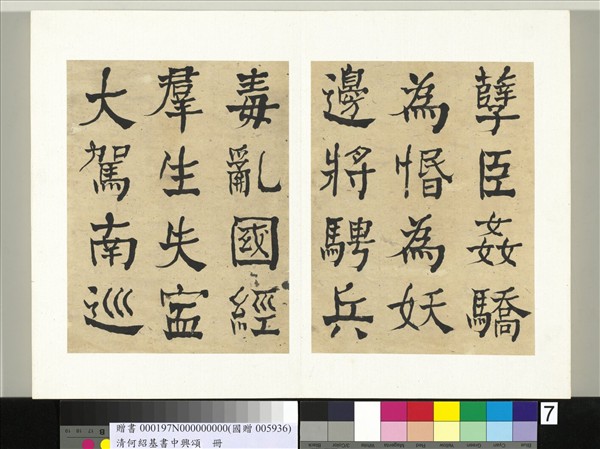 孽臣姦驕
為惛為妖
邊將騁兵
毒亂國經
羣生失寍
大駕南巡
7
贈書 000197N000000000(國贈 005936)
清何紹基書中興頌　冊